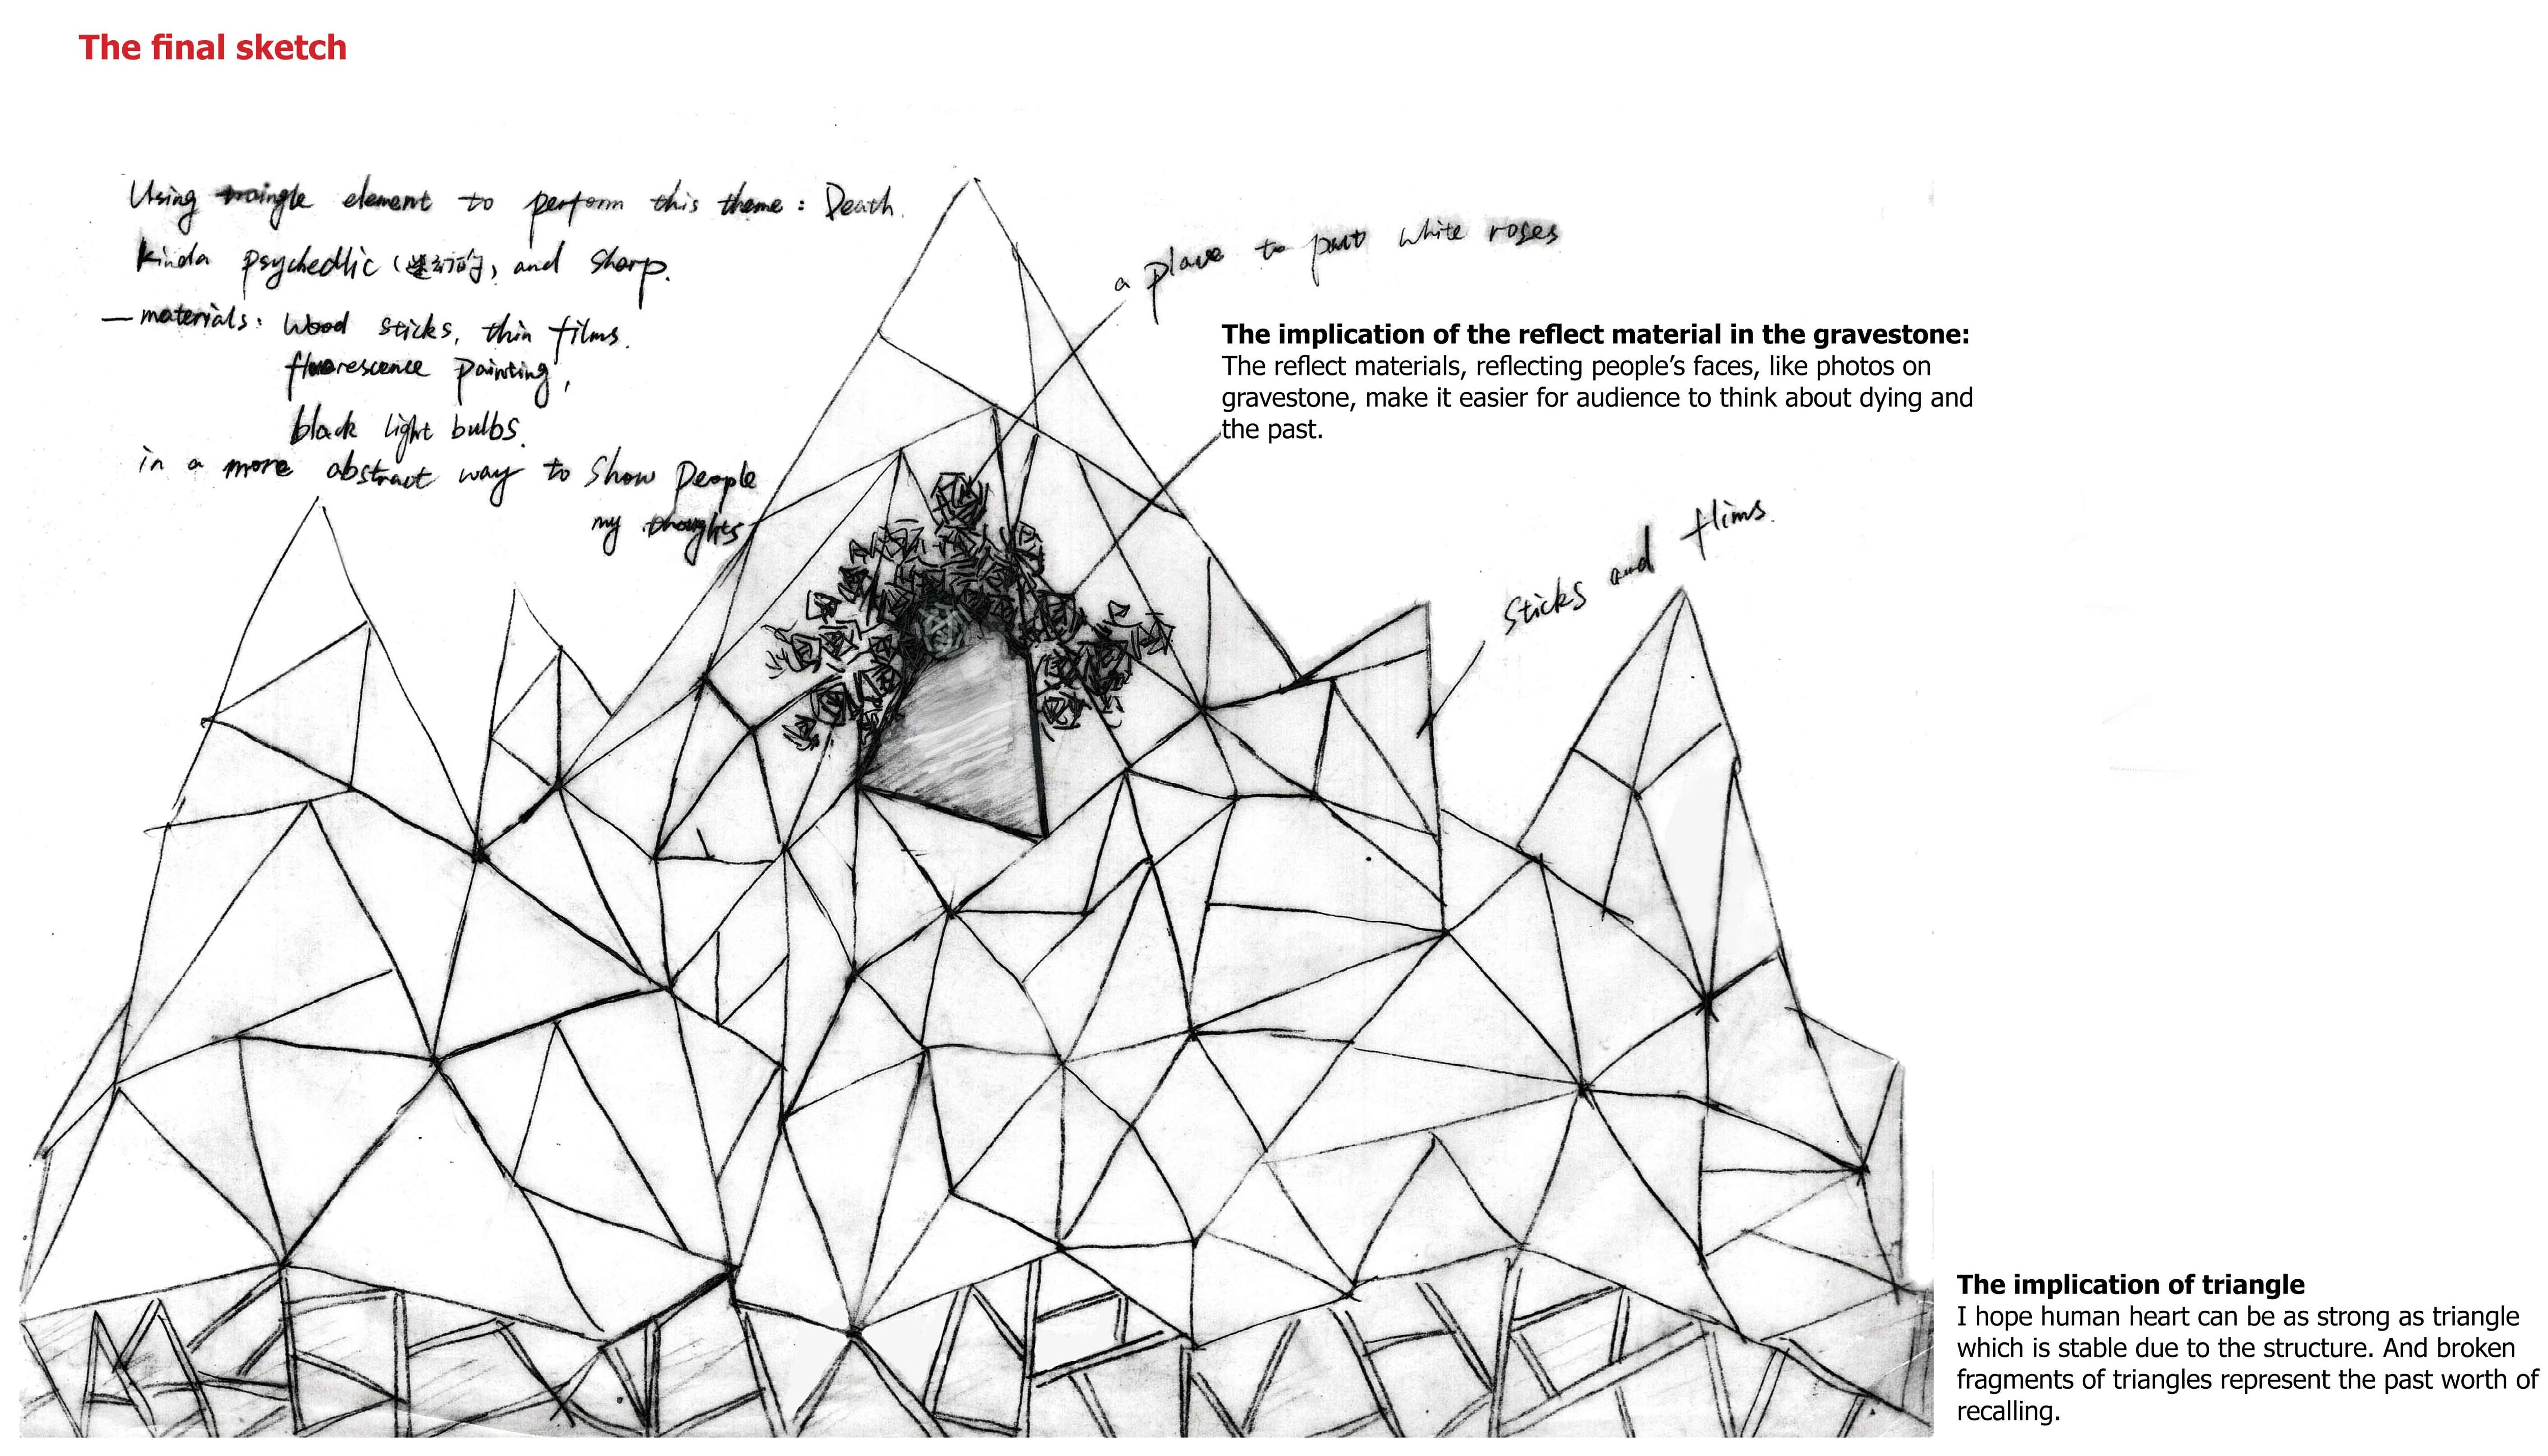 The final sketch
Using traingle element to perform this theme : Death.
kinda psychedlic (迷幻的) and sharp.
— materials: Wood sticks, thin films.
fluorescence painting,
black light bulbs.
in a more abstract way to show people
my thoughts
a place to put white roses
The implication of the reflect material in the gravestone:
The reflect materials, reflecting people's faces, like photos on
gravestone, make it easier for audience to think about dying and
the past.
sticks and flims.
The implication of triangle
I hope human heart can be as strong as triangle
which is stable due to the structure. And broken
fragments of triangles represent the past worth of
recalling.